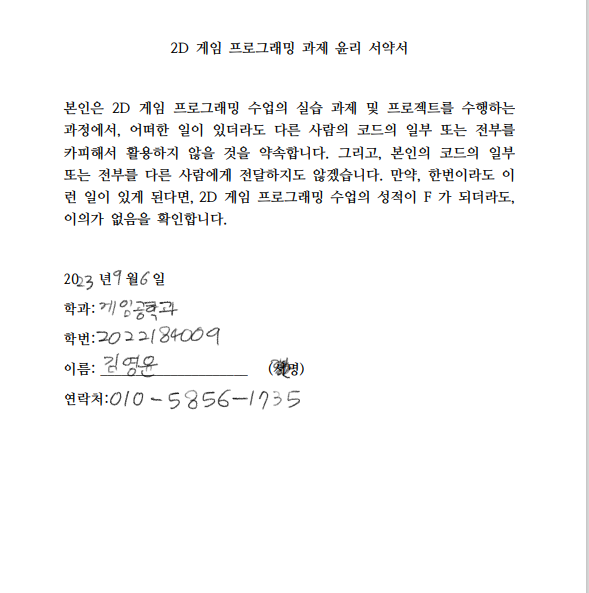 2D 게임 프로그래밍 과제 윤리 서약서
본인은 2D 게임 프로그래밍 수업의 실습 과제 및 프로젝트를 수행하는
과정에서, 어떠한 일이 있더라도 다른 사람의 코드의 일부 또는 전부를
카피해서 활용하지 않을 것을 약속합니다. 그리고, 본인의 코드의 일부
또는 전부를 다른 사람에게 전달하지도 않겠습니다. 만약, 한번이라도 이
런 일이 있게 된다면, 2D 게임 프로그래밍 수업의 성적이 F 가 되더라도,
이의가 없음을 확인합니다.
2023 년 9 월 6 일
학과: 게임공학과
학번: 2022184009
이름: 김영윤 (서명)
연락처: 010-5856-1735